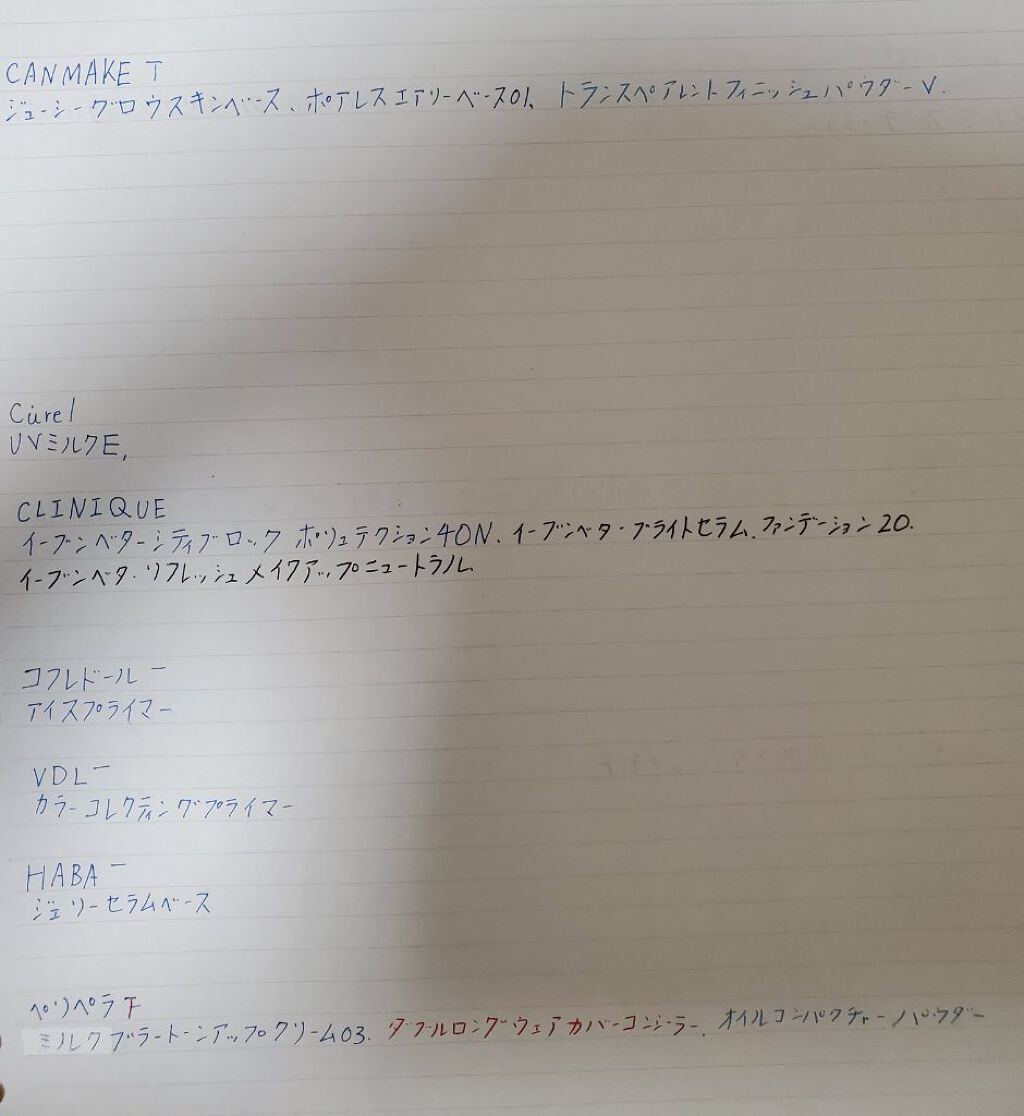 CANMAKE T
ジューシーグロウスキンベース、ポアレスエアリーベース01、トランスペアレントフィニッシュパウダーV.
Curel
UVミルクE,
CLINIQUE
イーブンベターシティブロック ポリュテクション40N、イーブンベターブライトセラム、ファンデーション20.
イーブンベターリフレッシュメイクアップニュートラル
コフレドール ー
アイスプライマー
VDL ー
カラーコレクティングプライマー
HABA ー
ジェリーセラムベース
ペリペラ下
ミルクブラートーンアップクリーム03. ダブルロングウェアカバーコンシーラー, オイルコンパクチャーパウダー